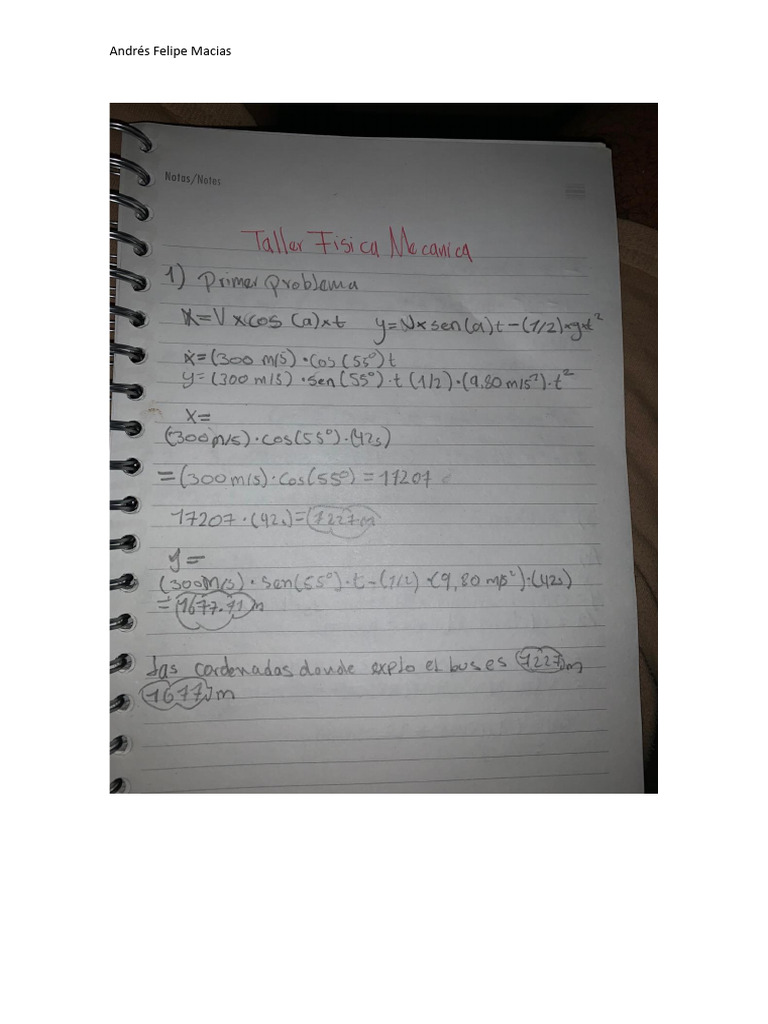 Andrés Felipe Macias
Notas/Notes
Taller Fisica Mecanica
1) Primer problema
X=V x cos (a) x t y=V x sen(a) t - (1/2) x g x t²
x=(300 m/s) · Cos (55°) t
y=(300 m/s) · sen(55°) · t (1/2) · (9.80 m/s²) · t²
x=
(300m/s) · cos(55°) · (42s)
=(300m/s) · Cos(55°) = 17207
17207 · (42s) = (7227m
y=
(300m/s) · sen(55°) · t - (1/2) · (9,80 m/s²) · (42s)
= 1677.71 m
Las cordenadas donde explo el bus es 7227m
1677m